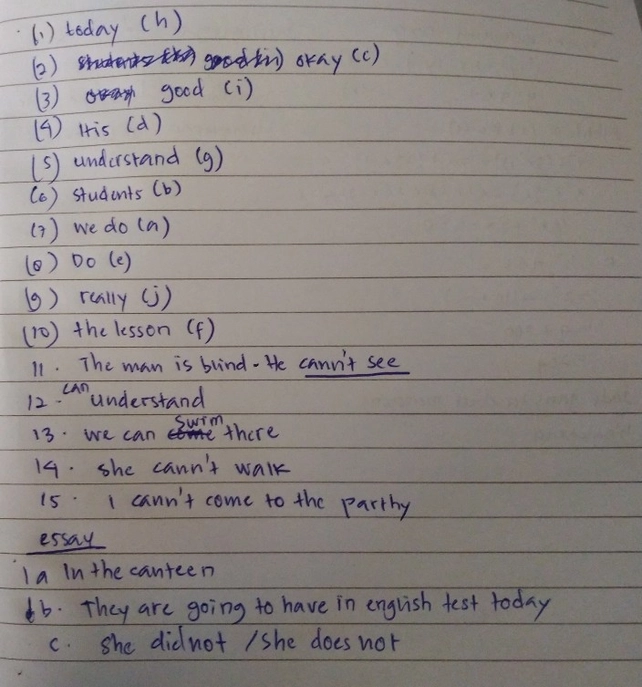 (1) today (h)
(2) okay (c)
(3) good (i)
(4) His (d)
(5) understand (g)
(6) students (b)
(7) we do (a)
(8) Do (e)
(9) really (j)
(10) the lesson (f)
11. The man is blind - He cann't see
12. can understand
13. we can swim there
14. she cann't walk
15. I cann't come to the parthy
essay
1a In the canteen
b. They are going to have in english test today
c. she did not / she does not